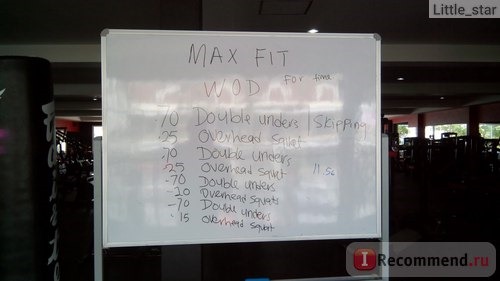 Little_star
MAX FIT
WOD For time
.70 Double unders | Skipping
.25 Overhead squat
.70 Double unders
.25 Overhead squat 11.56
-70 Double unders
-10 Overhead squats
-70 Double unders
.15 Overhead squat
IRecommend.ru